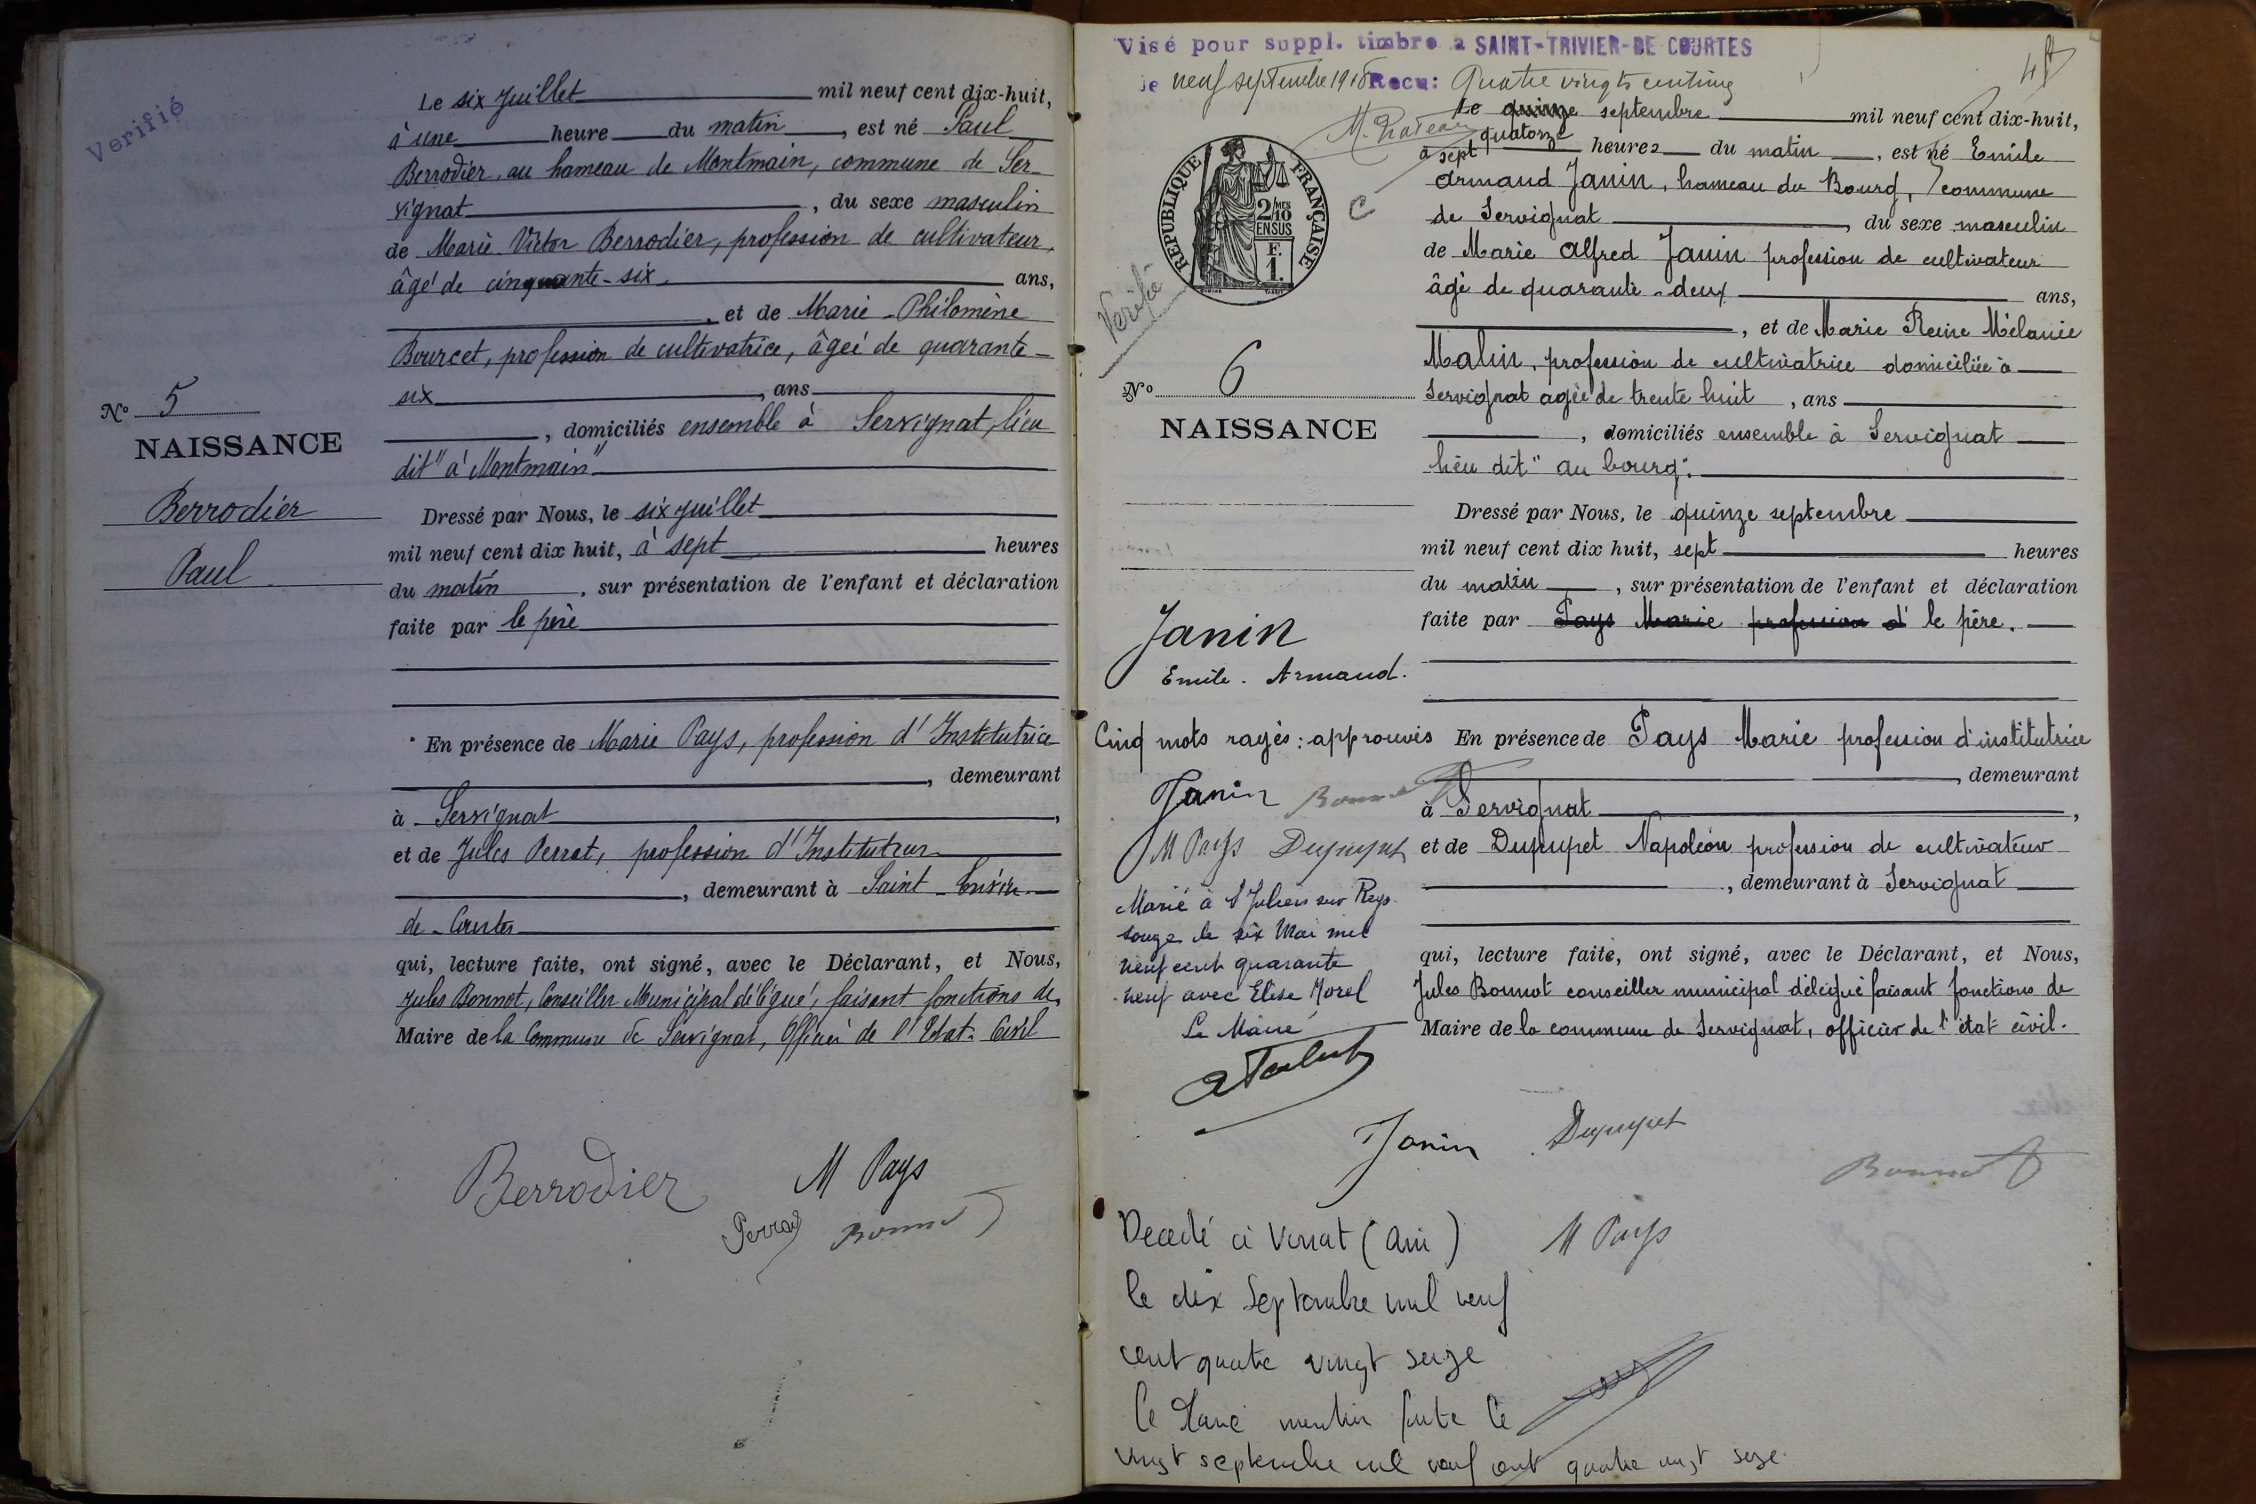 Verifié
Le six Juillet mil neuf cent dix-huit,
à une heure du matin, est né Paul
Berrodier, au hameau de Montmain, commune de Ser-
vignat, du sexe masculin
de Marie Victor Berrodier, profession de cultivateur,
âgé de cinquante-six ans,
, et de Marie-Philomène
Bourcet, profession de cultivatrice, âgée de quarante-
six, ans
, domiciliés ensemble à Servignat, lieu
dit "à Montmain"
No 5
NAISSANCE
Berrodier
Paul
Dressé par Nous, le six juillet
mil neuf cent dix huit, à sept heures
du matin, sur présentation de l'enfant et déclaration
faite par le père
En présence de Marie Pays, profession d'Institutrice
, demeurant
à Servignat,
et de Jules Perret, profession d'Instituteur
, demeurant à Saint-Trivier-
de-Courtes
qui, lecture faite, ont signé, avec le Déclarant, et Nous,
Jules Bonnot, Conseiller Municipal délégué, faisant fonctions de,
Maire de la Commune de Servignat, Officier de l'Etat-Civil
Berrodier
M Pays
Bonnot
Visé pour suppl. timbre a SAINT-TRIVIER-DE COURTES
le neuf septembre 1918 Recu: Quatre vingts centimes
Le quinze septembre mil neuf cent dix-huit,
quatorze
à sept heures du matin, est né Emile
Armand Janin, hameau du Bourg, commune
de Servignat, du sexe masculin
de Marie Alfred Janin profession de cultivateur
âgé de quarante-deux ans,
, et de Marie Reine Mélanie
Malin, profession de cultivatrice domiciliée à
Servignat agée de trente huit, ans
, domiciliés ensemble à Servignat
lieu dit "au bourg".
RÉPUBLIQUE FRANÇAISE
2/10 MES
EN SUS
F.
1.
C
Verifié
No 6
NAISSANCE
Janin
Emile. Armand.
Dressé par Nous, le quinze septembre
mil neuf cent dix huit, sept heures
du matin, sur présentation de l'enfant et déclaration
faite par Pays Marie profession d' le père.
En présence de Pays Marie profession d'institutrice
, demeurant
à Servignat,
et de Dupupet Napoléon profession de cultivateur
, demeurant à Servignat
qui, lecture faite, ont signé, avec le Déclarant, et Nous,
Jules Bonnot conseiller municipal délégué faisant fonctions de
Maire de la commune de Servignat, officier de l'état civil.
Cinq mots rayés: approuvés
Janin Bonnot
M Pays Dupupet
Marié à St Julien sur Reys-
souze le six Mai mil
neuf cent quarante
neuf avec Elise Morel
Le Maire
Janin
Dupupet
Bonnot
M Pays
Décédé à Viriat (Ain)
le dix Septembre mil neuf
cent quatre vingt seize
vingt septembre mil neuf cent quatre vingt seize.